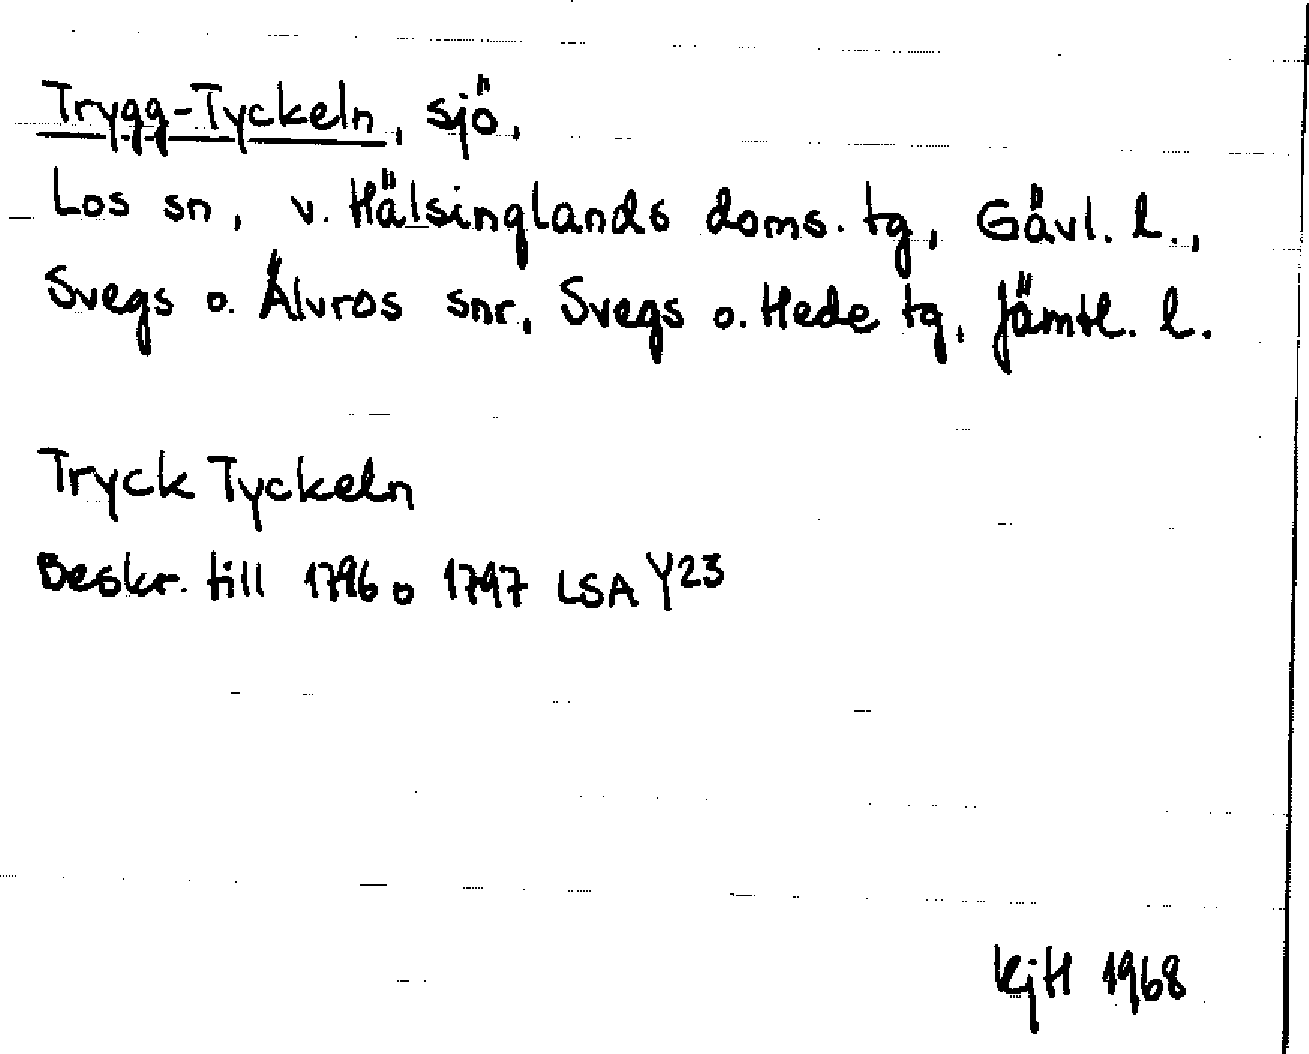 Trygg-Tyckeln, sjö,
Los sn, v. Hälsinglands doms. tg, Gävl. l.,
Svegs o. Älvros snr, Svegs o. Hede tg, Jämtl. l.
Tryck Tyckeln
Beskr. till 1796 o 1797 LSA Y23
KjH 1968